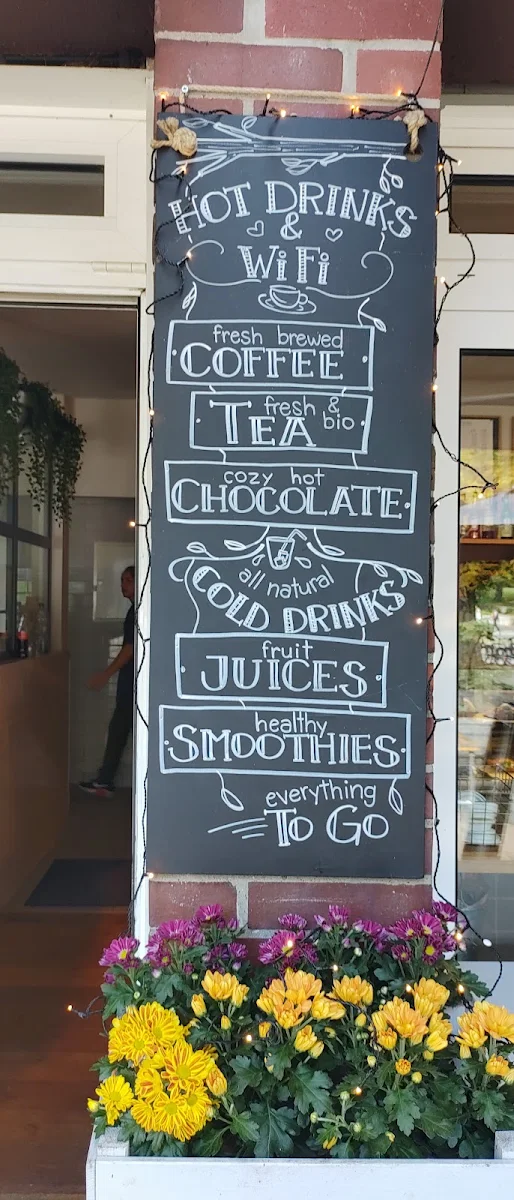 HOT DRINKS
&
WiFi
fresh brewed
COFFEE
fresh &
TEA bio
cozy hot
CHOCOLATE
all natural
COLD DRINKS
fruit
JUICES
healthy
SMOOTHIES
everything
To Go